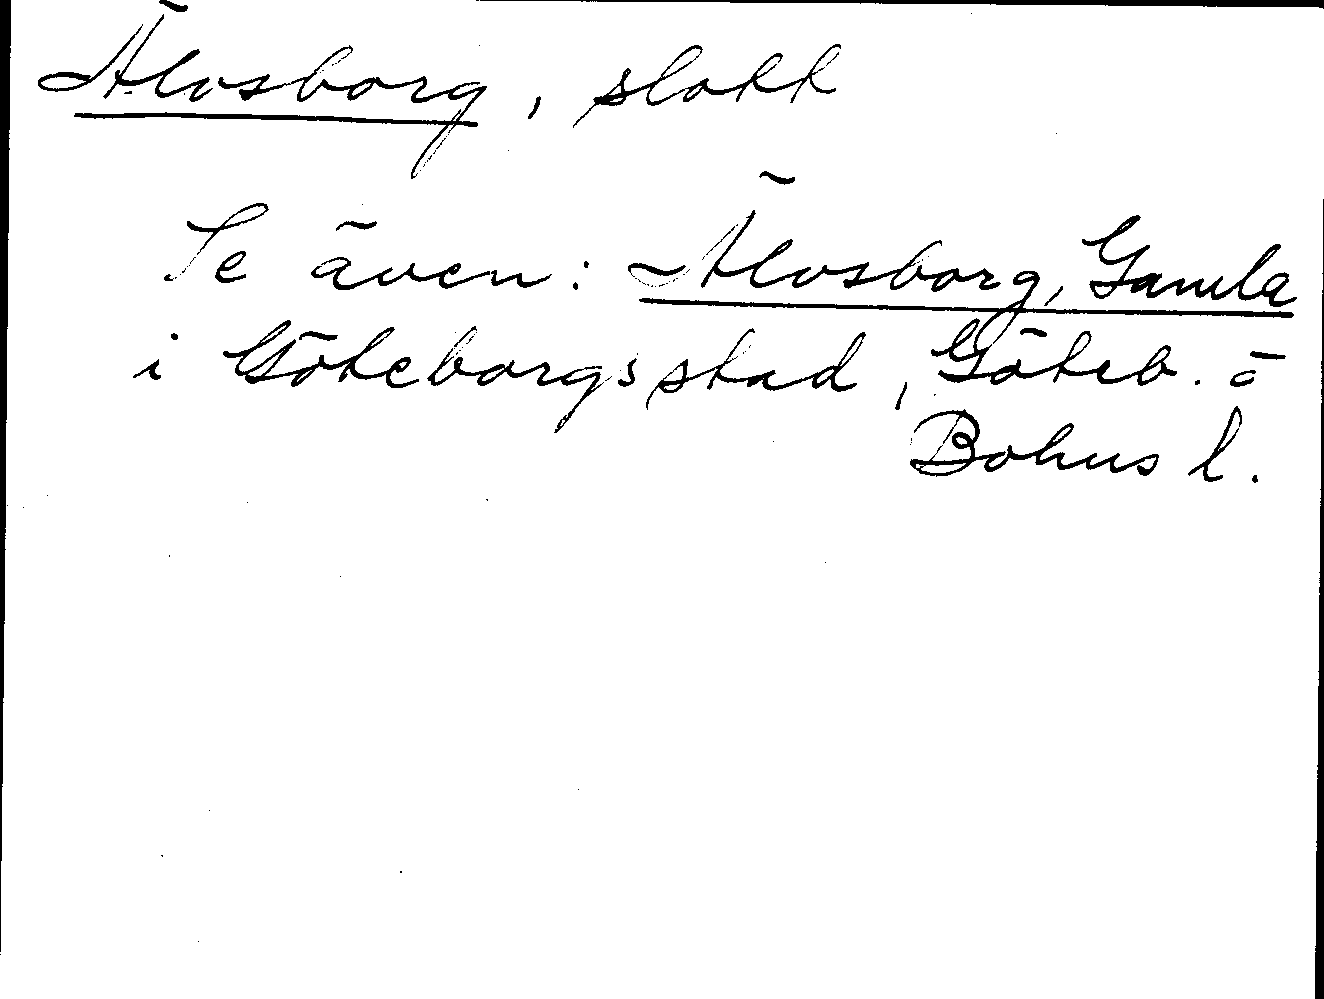 Älvsborg, slott
Se även: Älvsborg, Gamla
i Göteborgs stad, Göteb. o
Bohus l.